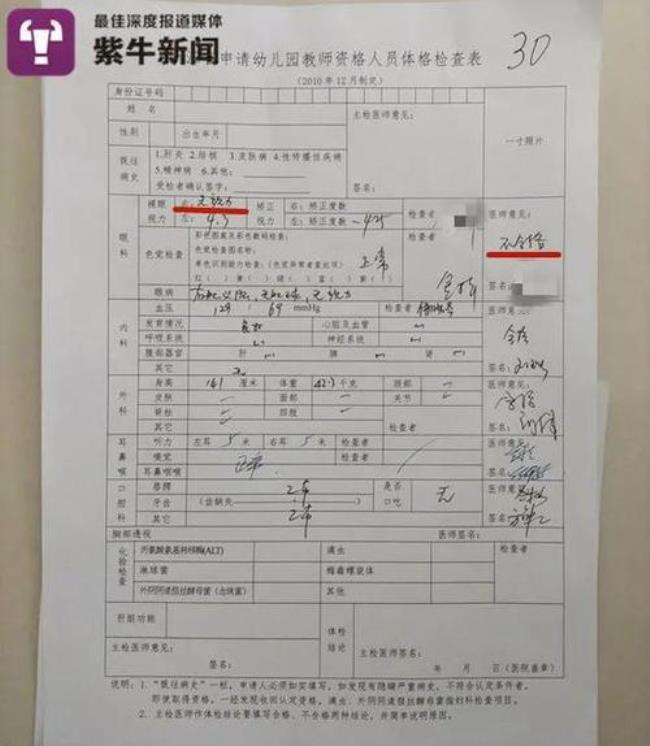 最佳深度报道媒体
紫牛新闻
申请幼儿园教师资格人员体格检查表
30
(2010年12月制定)
身份证号码
姓 名
主检医师意见:
一寸照片
性别
出生年月
既往病史
1.肝炎 2.结核 3.皮肤病 4.性传播性疾病
5.精神病 6.其他:
受检者确认签字:
签名:
眼科
裸眼视力
右: 无视力
矫正视力
右: 矫正度数
检查者
医师意见:
左: 4.3
左: 矫正度数 -425
不合格
色觉检查
彩色图案及彩色数码检查:
检查者
色觉检查图名称:
单色识别能力检查:(色觉异常者查此项)
正常
红( ) 黄( ) 绿( ) 蓝( ) 紫( )
签名:
眼病
内科
血压
129 / 69 mmHg
检查者
医师意见:
发育情况
良好
心脏及血管
呼吸系统
神经系统
合格
腹部器官
肝
脾
肾
其它
签名:
外科
身高
161 厘米
体重
42.3 千克
颈部
医师意见:
皮肤
面部
关节
合格
脊柱
四肢
签名:
其它
检查者
耳鼻喉
听力
左耳 5 米
右耳 5 米
检查者
医师意见:
嗅觉
正常
检查者
耳鼻咽喉
签名:
口腔科
唇腭
是否口吃
无
医师意见:
牙齿
(齿缺失
)
其它
签名:
胸部透视
医师签名:
化验检查
丙氨酸氨基转移酶(ALT)
滴虫
检查者
淋球菌
梅毒螺旋体
外阴阴道假丝酵母菌(念珠菌)
其他
肝胆功能
体检结论
主检医师意见:
主检医师签名:
签名:
年 月 日(医院盖章)
说明:1.“既往病史”一栏,申请人必须如实填写,如发现有隐瞒严重病史,不符合认定条件者,
即使取得资格,一经发现收回认定资格。滴虫、外阴阴道假丝酵母菌指妇科检查项目。
2.主检医师作体检结论要填写合格、不合格两种结论,并简单说明原因。